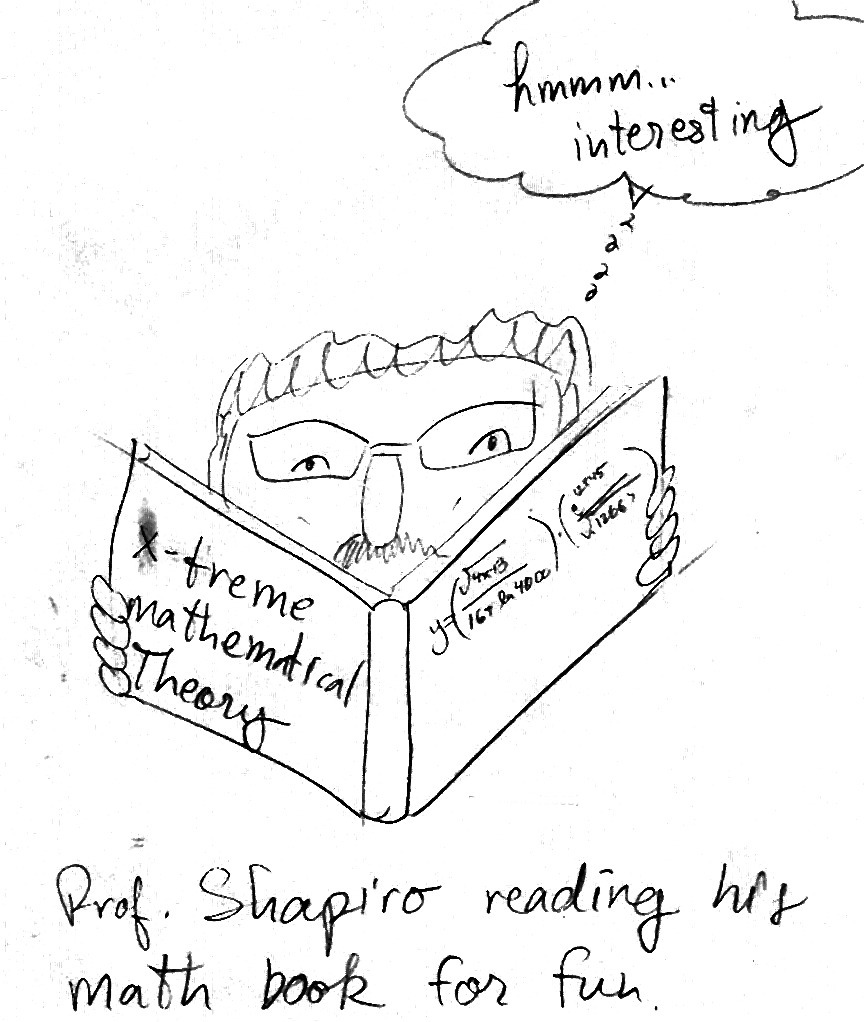 hmmm...
interesting
x-treme
mathematical
Theory
y=(√4x+13 / 16+ ln 4000)
Prof. Shapiro reading his
math book for fun.